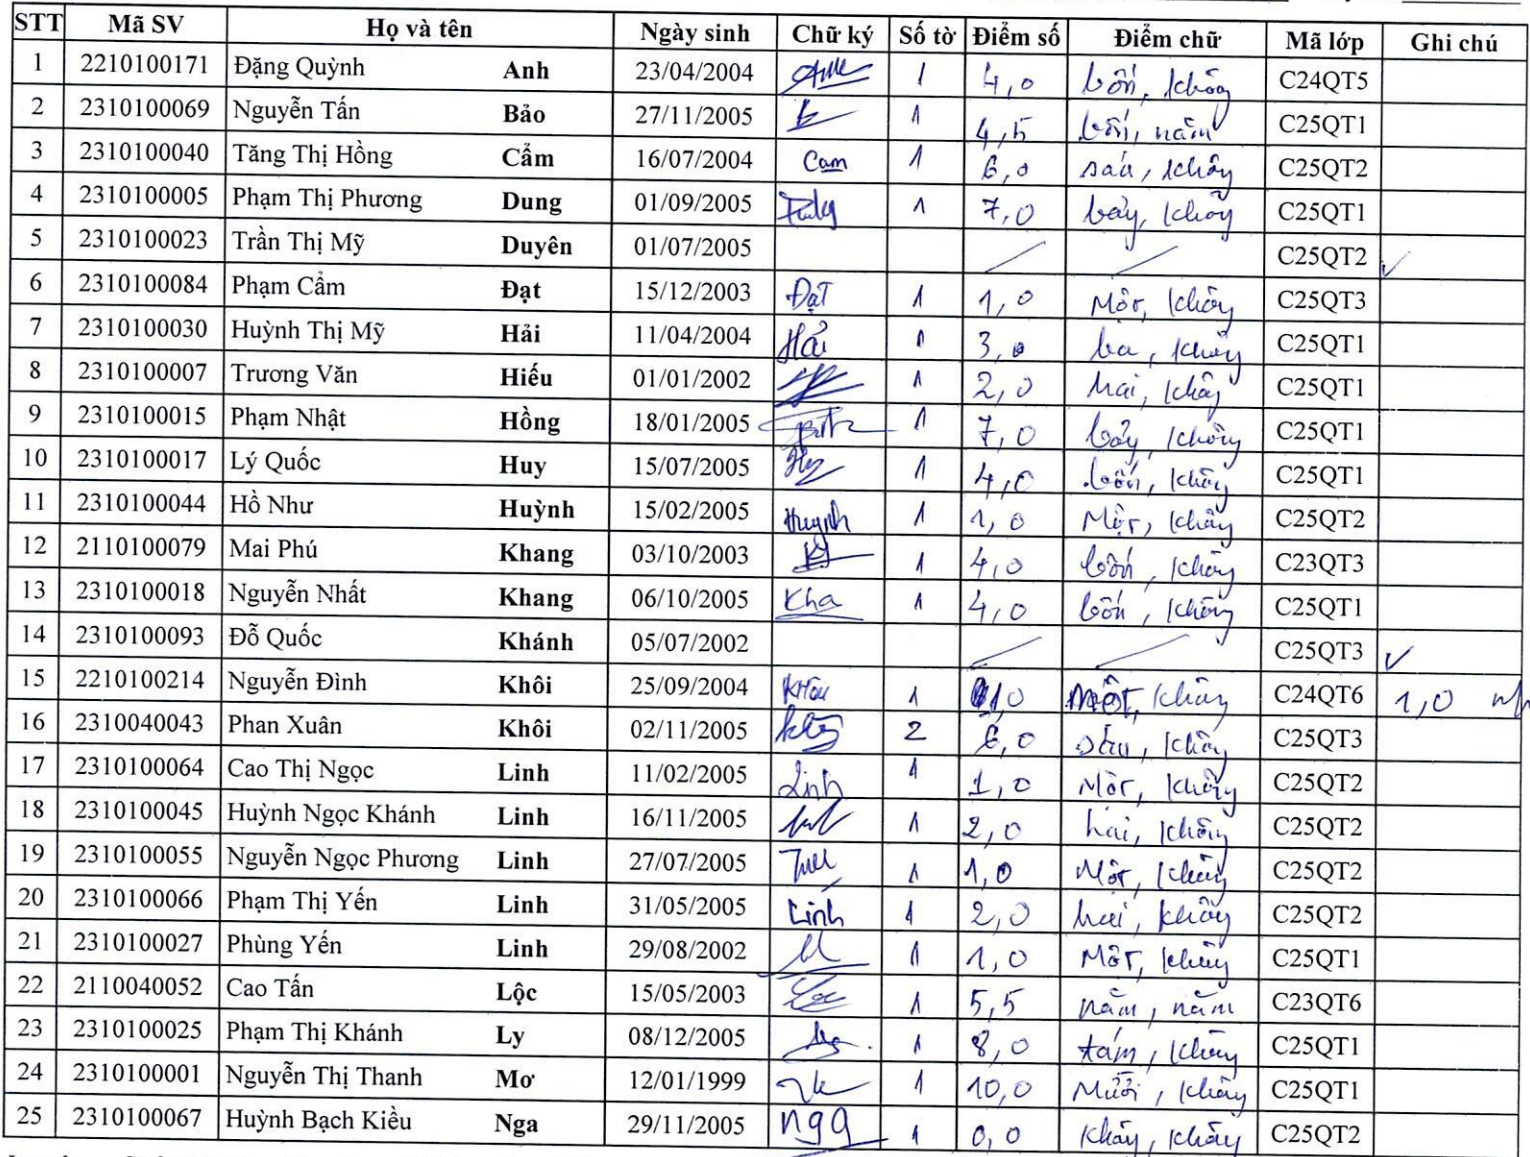 STT Mã SV Họ và tên Ngày sinh Chữ ký Số tờ Điểm số Điểm chữ Mã lớp Ghi chú
1 2210100171 Đặng Quỳnh Anh 23/04/2004 1 4,0 bốn, không C24QT5
2 2310100069 Nguyễn Tấn Bảo 27/11/2005 1 4,5 bốn, năm C25QT1
3 2310100040 Tăng Thị Hồng Cẩm 16/07/2004 Cam 1 6,0 sáu, không C25QT2
4 2310100005 Phạm Thị Phương Dung 01/09/2005 1 7,0 bảy, không C25QT1
5 2310100023 Trần Thị Mỹ Duyên 01/07/2005 C25QT2
6 2310100084 Phạm Cẩm Đạt 15/12/2003 Đạt 1 1,0 Một, không C25QT3
7 2310100030 Huỳnh Thị Mỹ Hải 11/04/2004 Hải 1 3,0 ba, không C25QT1
8 2310100007 Trương Văn Hiếu 01/01/2002 1 2,0 hai, không C25QT1
9 2310100015 Phạm Nhật Hồng 18/01/2005 1 7,0 bảy, không C25QT1
10 2310100017 Lý Quốc Huy 15/07/2005 Huy 1 4,0 bốn, không C25QT1
11 2310100044 Hồ Như Huỳnh 15/02/2005 Huynh 1 1,0 Một, không C25QT2
12 2110100079 Mai Phú Khang 03/10/2003 1 4,0 bốn, không C23QT3
13 2310100018 Nguyễn Nhất Khang 06/10/2005 Kha 1 4,0 bốn, không C25QT1
14 2310100093 Đỗ Quốc Khánh 05/07/2002 C25QT3
15 2210100214 Nguyễn Đình Khôi 25/09/2004 1 1,0 Một, không C24QT6 1,0
16 2310040043 Phan Xuân Khôi 02/11/2005 2 6,0 sáu, không C25QT3
17 2310100064 Cao Thị Ngọc Linh 11/02/2005 Linh 1 1,0 Một, không C25QT2
18 2310100045 Huỳnh Ngọc Khánh Linh 16/11/2005 1 2,0 hai, không C25QT2
19 2310100055 Nguyễn Ngọc Phương Linh 27/07/2005 1 1,0 Một, không C25QT2
20 2310100066 Phạm Thị Yến Linh 31/05/2005 Linh 1 2,0 hai, không C25QT2
21 2310100027 Phùng Yến Linh 29/08/2002 1 1,0 Một, không C25QT1
22 2110040052 Cao Tấn Lộc 15/05/2003 1 5,5 năm, năm C23QT6
23 2310100025 Phạm Thị Khánh Ly 08/12/2005 1 8,0 tám, không C25QT1
24 2310100001 Nguyễn Thị Thanh Mơ 12/01/1999 1 10,0 Mười, không C25QT1
25 2310100067 Huỳnh Bạch Kiều Nga 29/11/2005 nga 1 0,0 Không, không C25QT2